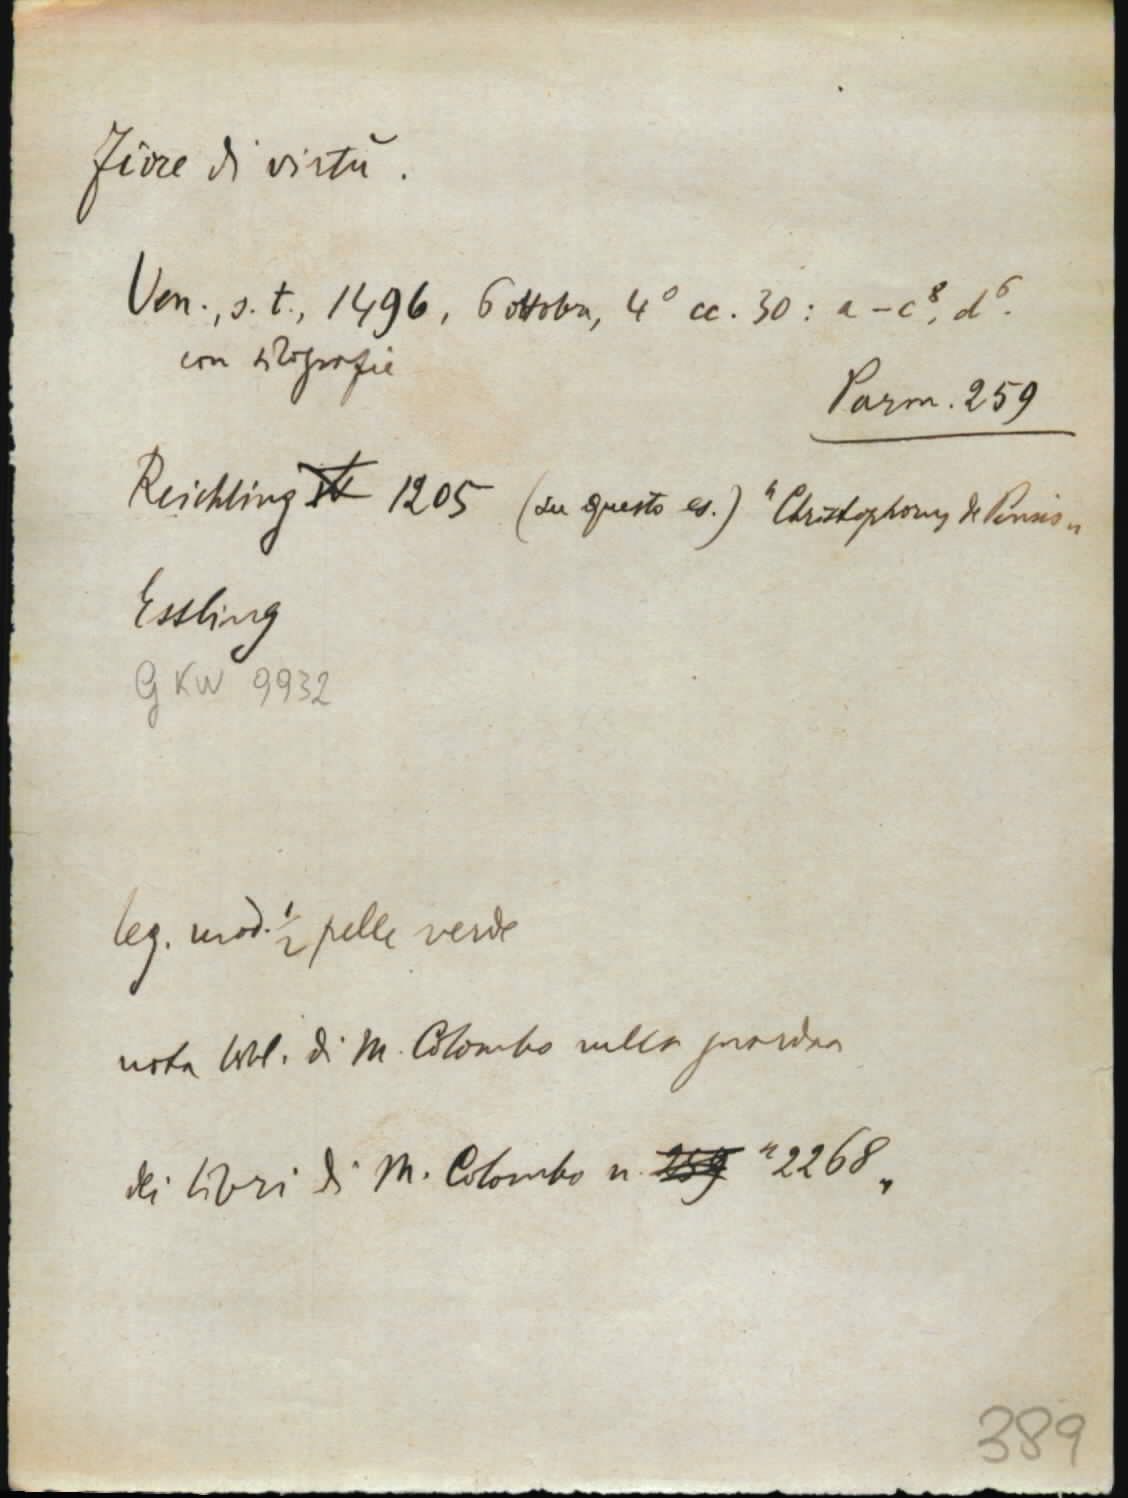 Fiore di virtù.
Ven., s. t., 1496, 6 ottobre, 4° cc. 30: a-c⁸, d⁶.
con silografie
Parm. 259
Reichling 1205 (su questo es.) "Christophorus de Pensis"
Essling
GKW 9932
leg. mod. ½ pelle verde
nota bibl. di M. Colombo sulla guardia
dei libri di M. Colombo n. 259 "2268"
389